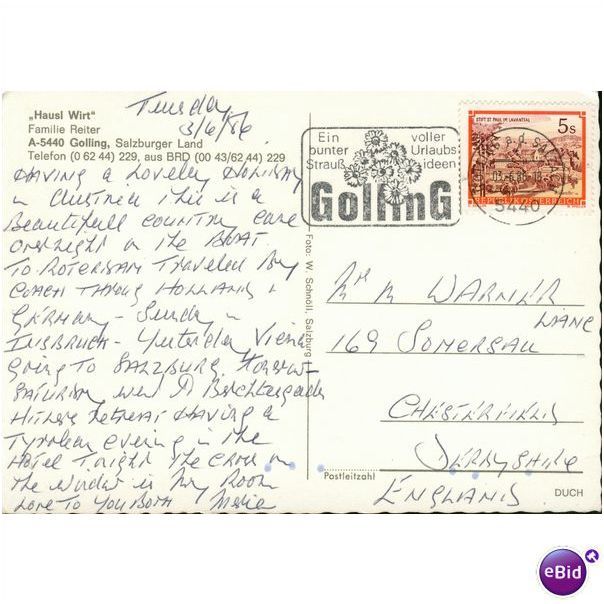 „Hausl Wirt"
Familie Reiter
A-5440 Golling, Salzburger Land
Telefon (0 62 44) 229, aus BRD (00 43/62 44) 229
Tuesday
3/6/86
HAVING A LOVELEY HOLIDAY
in Austria this is a
Beautifull country came
overnight on the BOAT
TO ROTERDAM Traveled by
COACH THROUG HOLLAND &
GERMANY - Sunday in
INSBRUCK - Yesterday Vienna
going TO SALZBURG Tomorrow
SATURDAY went to Berchtesgaden
Hitlers retreat HAVING a
Tyrolean evening in the
Hotel Tonight The cross on
the window is my Room
Love To You Both
Ein bunter Strauß
voller Urlaubs ideen
GollinG
STIFT ST. PAUL IM LAVANTTAL
5s
REPUBLIK ÖSTERREICH
5440
Foto: W. Schnöll, Salzburg
WARNER
169 LANE
CHESTERFIELD
DERBYSHIRE
ENGLAND
Postleitzahl
DUCH
eBid